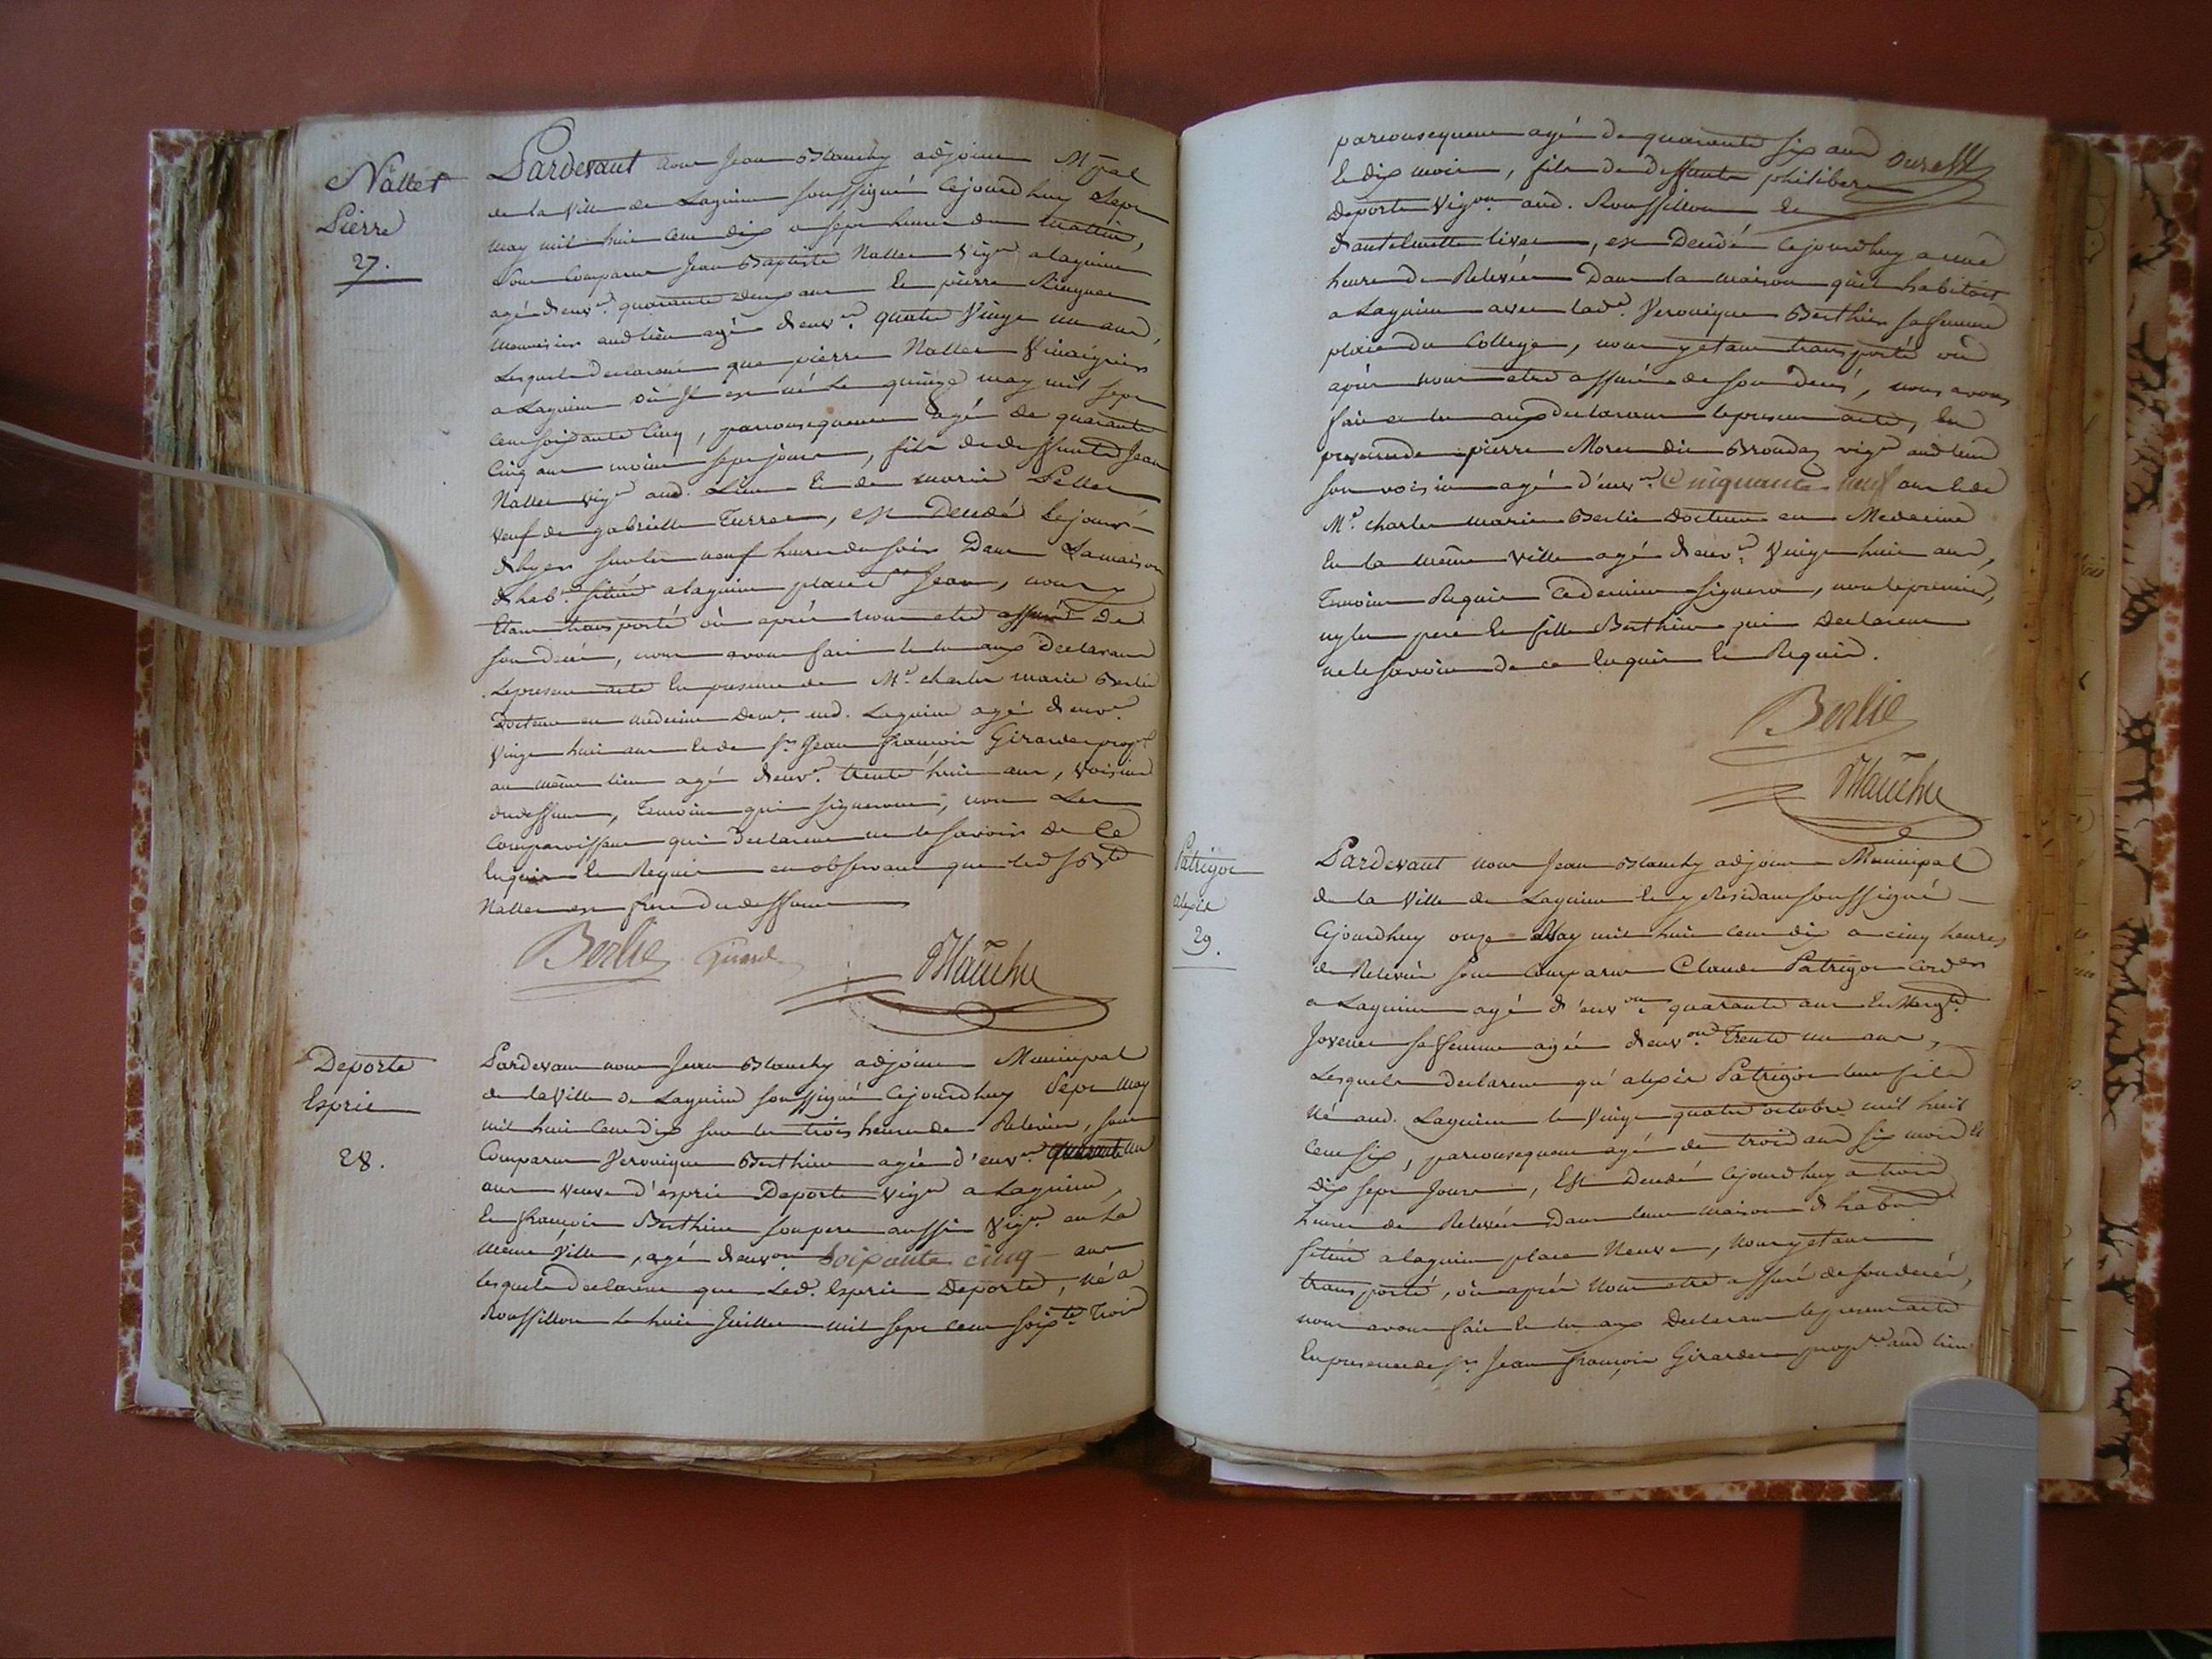 Nallet
Pierre
27.
Pardevant nous Jean Blanchy adjoint M.pal
de la Ville de Lagnieu soussigné Cejourdhuy Sept
may mil huit cent dix a sept heures du matin,
Sont Comparus Jean Baptiste Nallet Vig.n a lagnieu
agé d'env.n quarante deux ans Et pierre
aud lieu agé d'env.n quatre Vingt un ans,
Lesquels declarent que pierre Nallet
a Lagnieu où Il est né Le quinze may mil sept
Cent soixante Cinq, parconsequent agé de quarante
Cinq ans moins sept jours, fils de deffunts Jean
Nallet vig.n aud. Lieu Et de marie Pellet
veuf de gabrielle, est Decedé Lejour
d'hyer sur les neuf heures du soir Dans La maison
d'hab.n située a lagnieu place S.t Jean, nous y
Etant transporté où après nous etre assuré De
son decés, nous avons fait et lu aux Declarans
Lepresent acte En presence de M.r charles marie Berlie
Docteur en medecine dem.t aud. Lagnieu agé d'env.n
Vingt huit ans et de s.r Jean françois Girardet prop.re
au même lieu agé d'env.n trente huit ans, Voisins
du deffunt, Temoins qui signeront, non Les
Comparoissans qui declarent ne le savoir De Ce
Enquis Et Requis en observant que led J B.te
Nallet est frere du deffunt
Berlie Girardet Blanchy
Deporte
Esprit
28.
Pardevant nous Jean Blanchy adjoint Municipal
de la Ville de Lagnieu soussigné Cejourdhuy Sept May
mil huit Cent dix sur les trois heures de Relevée, sont
Comparus Veronique Berthier agée d'env.n quarante un
ans veuve d'esprit Deporte vig.n a Lagnieu,
Et françois Berthier son pere aussi Vig.n en La
meme Ville, agé d'env.on Soixante cinq ans
lesquels declarent que Led. Esprit Deporte, né a
Roussillon Le huit Juillet mil sept cent soix.te Trois
parconsequent agé de quarante six ans
Et dix mois, fils de deffunts philibert
Deporte Vig.on aud. Roussillon Et
d'antelmette, est Decedé Cejourdhuy a une
heure de Relevée Dans la maison qu'il habitoit
a Lagnieu avec lad.e Veronique Berthier sa femme
place du College, nous y etant transporté où
après nous etre assuré de son decés, nous avons
fait et lu aux declarans lepresent acte, En
presence de pierre Morel dit vig.n aud lieu
son voisin agé d'env.n Cinquante neuf ans Et de
M.r charles marie Berlie Docteur en Medecine
En la même Ville agé d'env.n Vingt huit ans,
Temoins Requis Ce dernier signera, non le premier,
ny les pere Et fille Berthier qui Declarent
ne le savoir de ce Enquis Et Requis.
Berlie
Blanchy
Patrigot
alexis
29.
Pardevant nous Jean Blanchy adjoint Municipal
de la Ville de Lagnieu Et y Residant soussigné
Cejourdhuy onze May mil huit Cent dix a cinq heures
de Relevée sont Comparus Claude Patrigot Cord.er
a Lagnieu agé d'env.on quarante ans Et Marg.te
Jovenet sa femme agée d'env.on Trente un ans,
Lesquels declarent qu'alexis Patrigot leur fils
Né aud. Lagnieu le Vingt quatre octobre mil huit
Cent six, parconsequent agé de trois ans six mois Et
Dix sept Jours, Est Decedé Cejourdhuy a trois
heures de Relevée Dans leur maison d'hab.on
située a lagnieu place Neuve, Nous y etant
transporté, où après Nous etre assuré de son decés,
nous avons fait Et lu aux Declarans le present acte
En presence de s.r Jean françois Girardet prop.re aud lieu